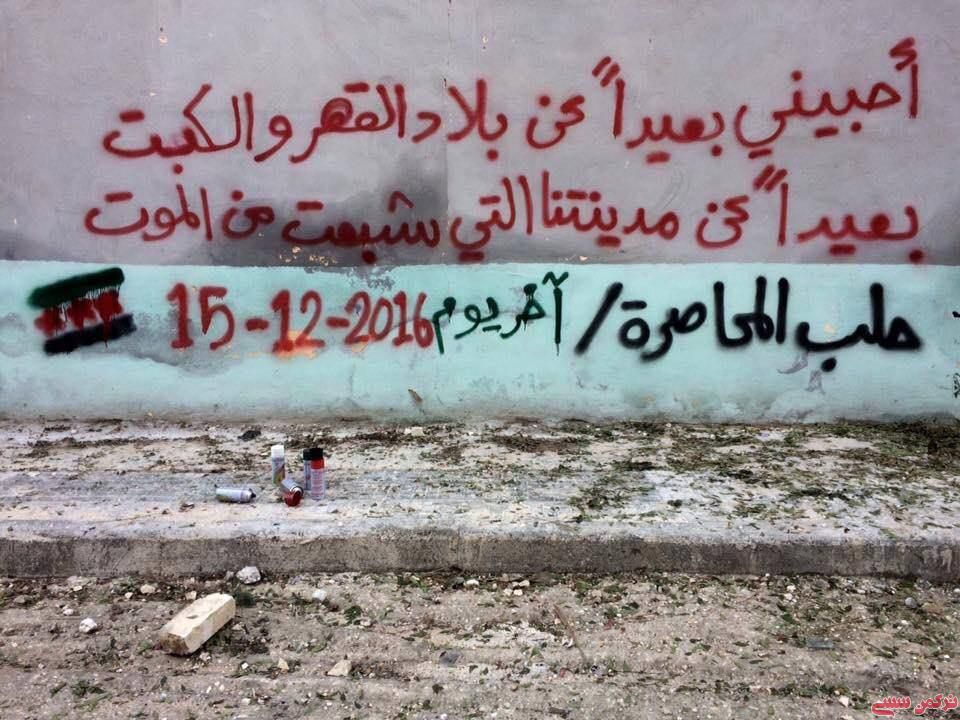 أحبيني بعيداً عن بلاد القهر والكبت
بعيداً عن مدينتنا التي شبعت من الموت
حلب المحاصرة / آخر يوم 15-12-2016
تركمن سسي